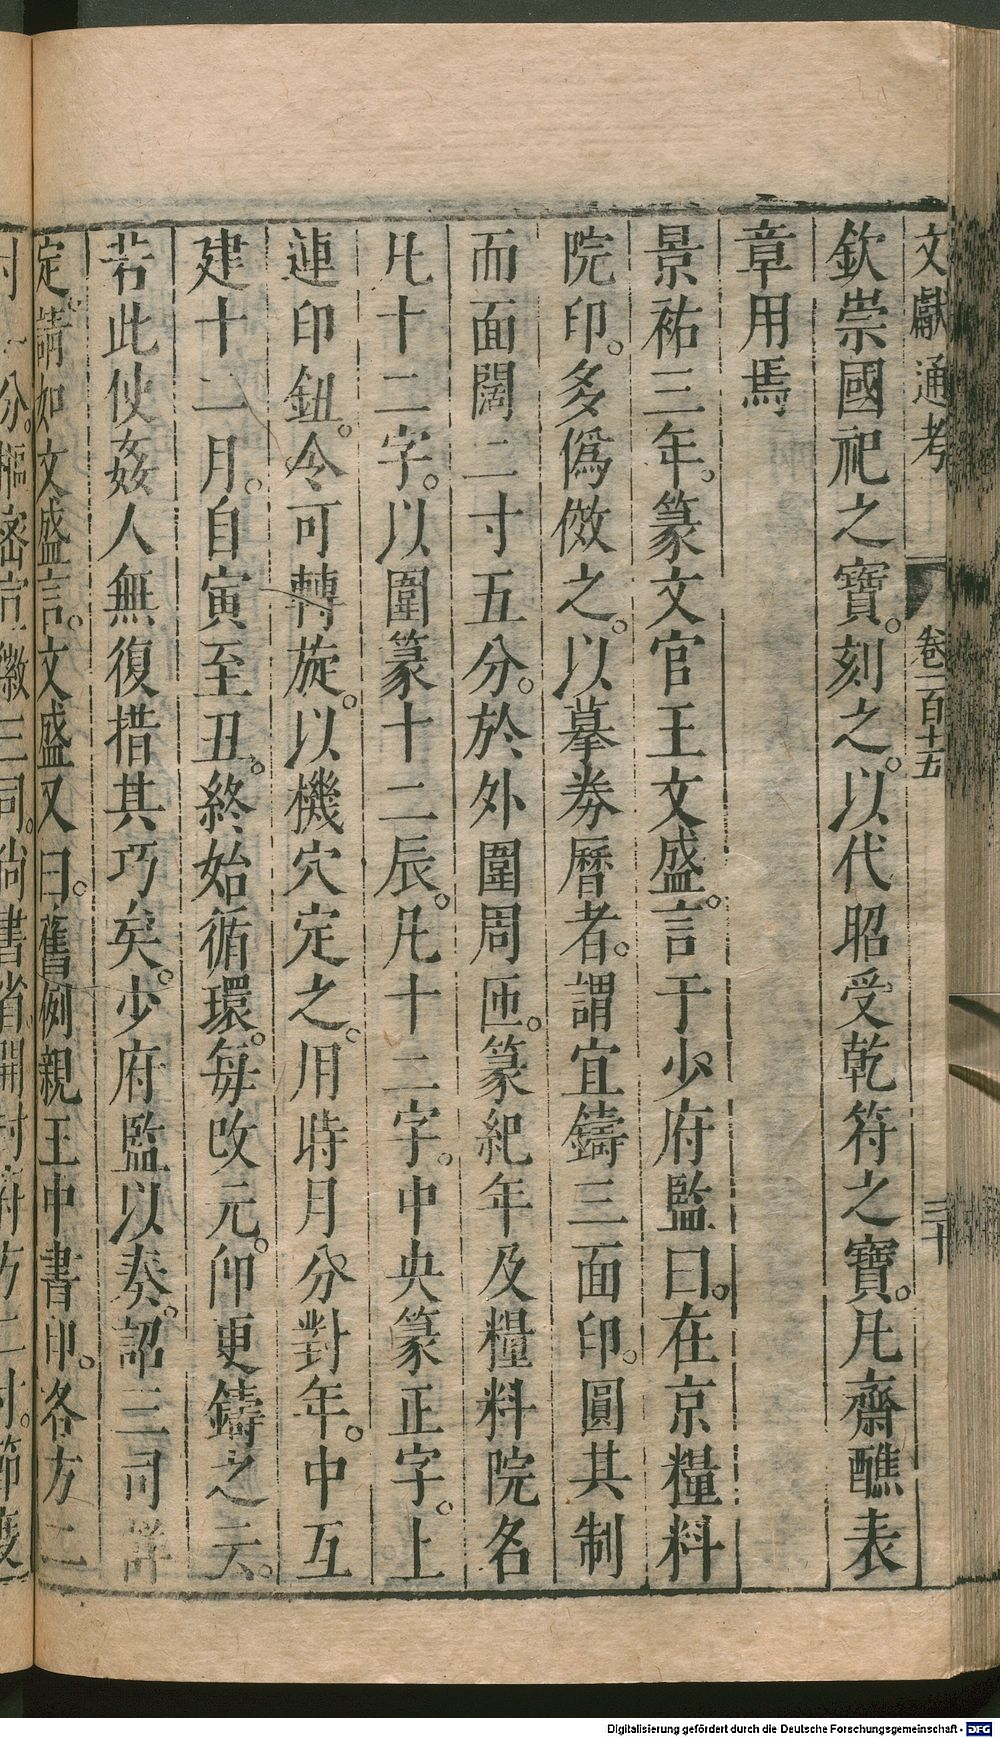 文獻通考 卷一百十五 三十
欽崇國祀之寶。刻之。以代昭受乾符之寶。凡齋醮表
章用焉
景祐三年。篆文官王文盛。言于少府監曰。在京糧料
院印。多僞倣之。以摹券曆者。謂宜鑄三面印。圓其制
而面闊二寸五分。於外圍周匝。篆紀年及糧料院名
凡十二字。以圍篆十二辰。凡十二字。中央篆正字。上
連印鈕。令可轉旋。以機穴定之。用時月分對年。中互
建十二月。自寅至丑。終始循環。每改元。即更鑄之云。
若此使姦人無復措其巧矣。少府監以奏。詔三司詳
定。請如文盛言。文盛又曰。舊例親王中書印。各方二
寸一分。樞密宣徽三司。尚書省。開封府方二寸。節度
Digitalisierung gefördert durch die Deutsche Forschungsgemeinschaft - DFG